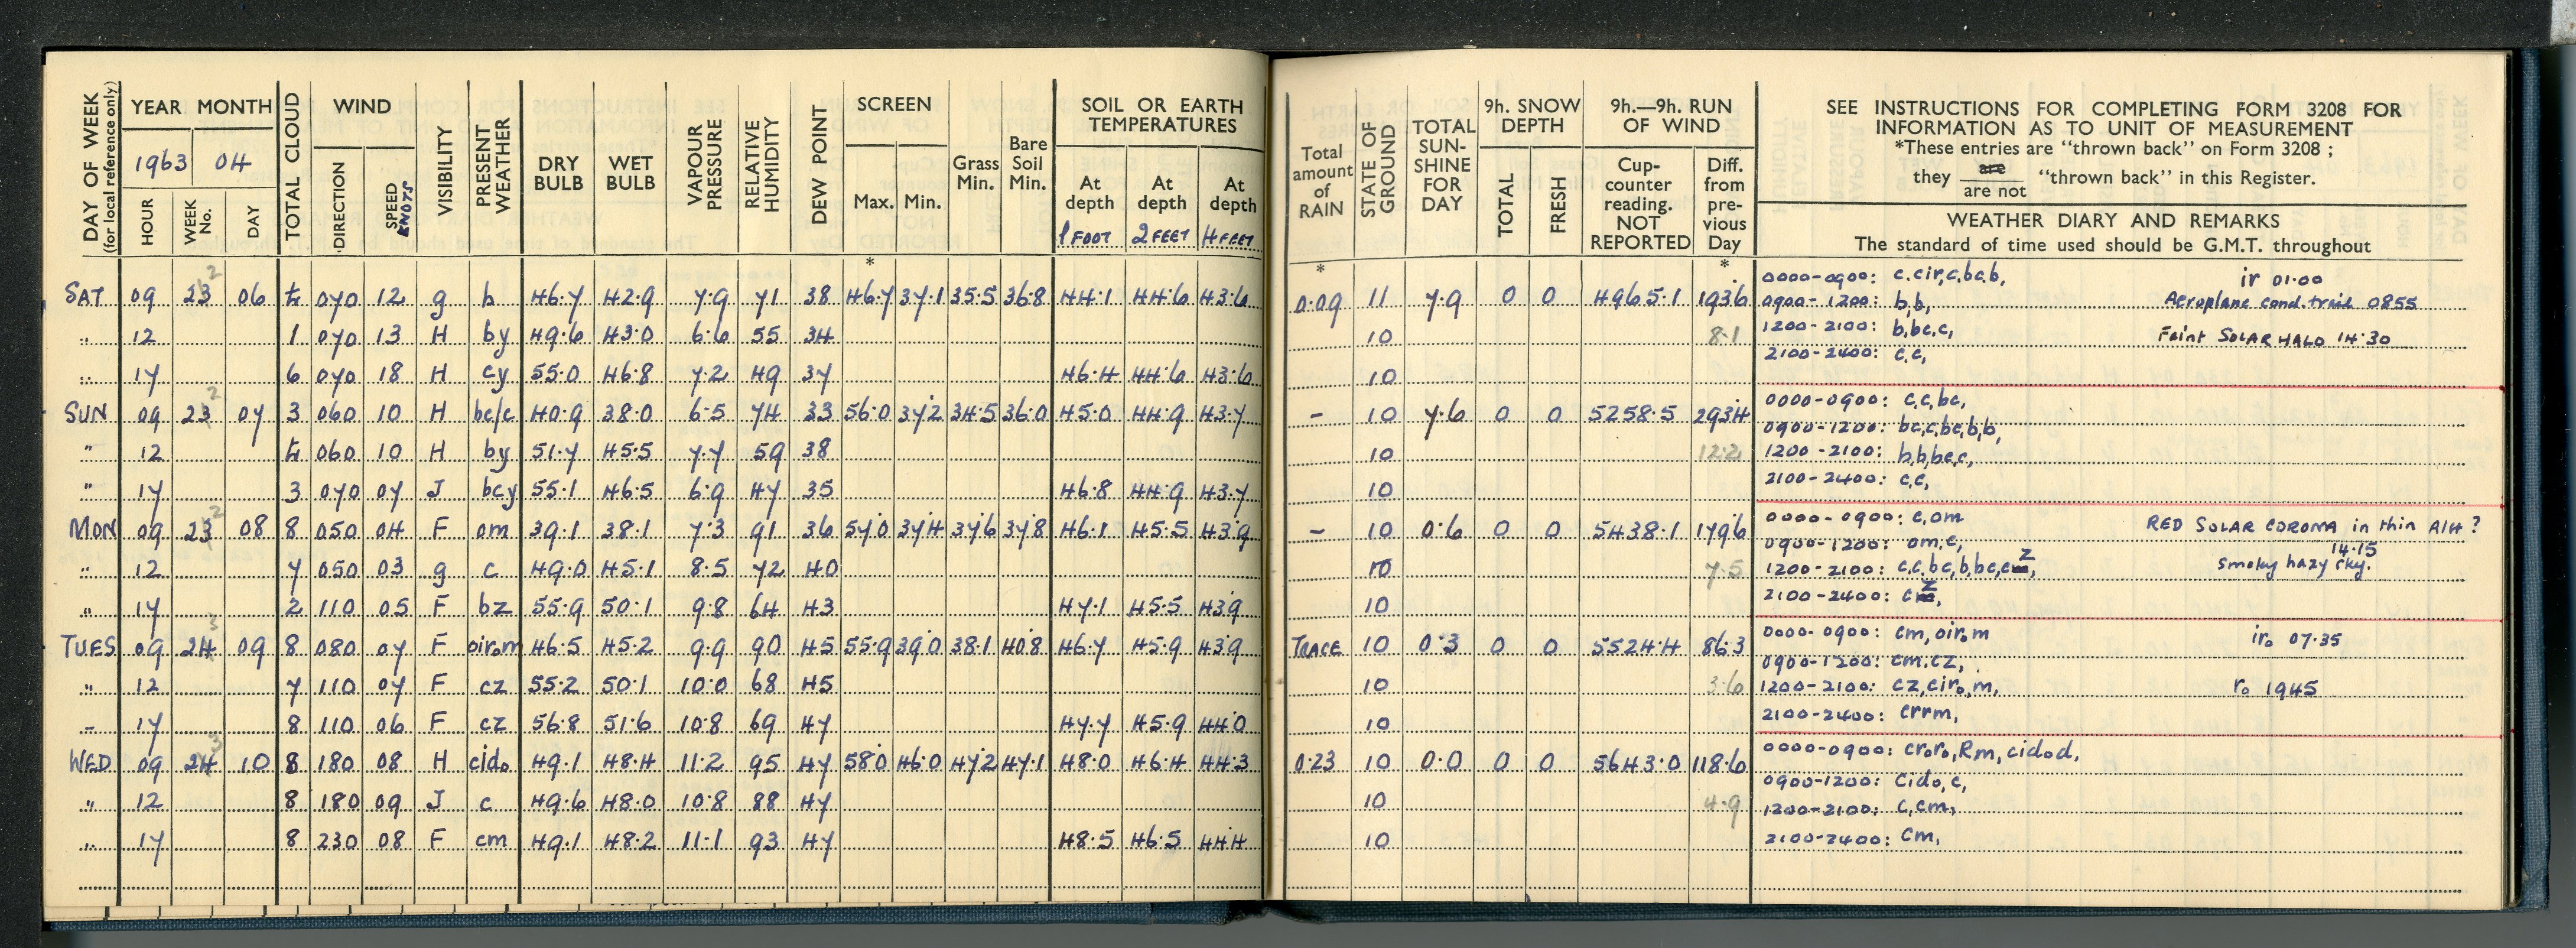 DAY OF WEEK
(for local reference only)
YEAR MONTH
1963 04
HOUR WEEK No. DAY
TOTAL CLOUD
WIND
DIRECTION SPEED KNOTS
VISIBILITY
PRESENT WEATHER
DRY BULB
WET BULB
VAPOUR PRESSURE
RELATIVE HUMIDITY
DEW POINT
SCREEN
Max. Min.
Grass Min.
Bare Soil Min.
SOIL OR EARTH TEMPERATURES
At depth 1 FOOT At depth 2 FEET At depth 4 FEET
Total amount of RAIN
STATE OF GROUND
TOTAL SUN-SHINE FOR DAY
9h. SNOW DEPTH
TOTAL FRESH
9h.—9h. RUN OF WIND
Cup-counter reading. NOT REPORTED
Diff. from pre-vious Day
SEE INSTRUCTIONS FOR COMPLETING FORM 3208 FOR
INFORMATION AS TO UNIT OF MEASUREMENT
*These entries are "thrown back" on Form 3208 ;
they are / are not "thrown back" in this Register.
WEATHER DIARY AND REMARKS
The standard of time used should be G.M.T. throughout
* * *
SAT 09 23 2 06 070 12 g b 46.7 42.9 7.9 71 38 46.7 37.1 35.5 36.8 44.1 44.6 43.6 0.09 11 7.9 0 0 4965.1 193.6
0000-0900: c.cir,c,bc,b, ir 01.00
0900-1200: b,b, Aeroplane cond. trail 0855
" 12 1 070 13 H by 49.6 43.0 6.6 55 34 10 8.1
1200-2100: b,bc,c, Faint SOLAR HALO 14.30
2100-2400: c,c,
" 17 6 070 18 H cy 55.0 46.8 7.2 49 37 46.4 44.6 43.6 10
SUN 09 23 2 07 3 060 10 H bc/c 40.9 38.0 6.5 74 33 56.0 37.2 34.5 36.0 45.0 44.9 43.7 - 10 7.6 0 0 5258.5 293.4
0000-0900: c,c,bc,
0900-1200: bc,c,bc,b,b,
" 12 060 10 H by 51.7 45.5 7.7 59 38 10 12.2
1200-2100: b,b,bc,c,
" 17 3 070 07 J bcy 55.1 46.5 6.9 47 35 46.8 44.9 43.7 10
2100-2400: c,c,
MON 09 23 2 08 8 050 04 F om 39.1 38.1 7.3 91 36 57.0 37.4 37.6 37.8 46.1 45.5 43.9 - 10 0.6 0 0 5438.1 179.6
0000-0900: c,om RED SOLAR CORONA in thin A14 ?
0900-1200: om,c, 14.15
" 12 7 050 03 g c 49.0 45.1 8.5 72 40 10 7.5
1200-2100: c,c,bc,b,bc,cz, Smoky hazy sky.
" 17 2 110 05 F bz 55.9 50.1 9.8 64 43 47.1 45.5 43.9 10
2100-2400: cz,
TUES 09 24 3 09 8 080 07 F oir₀m 46.5 45.2 9.9 90 45 55.9 39.0 38.1 40.8 46.7 45.9 43.9 TRACE 10 0.3 0 0 5524.4 86.3
0000-0900: cm, oir₀m ir₀ 07.35
0900-1200: cm.cz,
" 12 7 110 07 F cz 55.2 50.1 10.0 68 45 10 3.6
1200-2100: cz,cir₀,m, r₀ 1945
" 17 8 110 06 F cz 56.8 51.6 10.8 69 47 47.7 45.9 44.0 10
2100-2400: crrm,
WED 09 24 3 10 8 180 08 H cid₀ 49.1 48.4 11.2 95 47 58.0 46.0 47.2 47.1 48.0 46.4 44.3 0.23 10 0.0 0 0 5643.0 118.6
0000-0900: cr₀r₀,Rm, cid₀d,
0900-1200: cid₀,c,
" 12 8 180 09 J c 49.6 48.0 10.8 88 47 10 4.9
1200-2100: c,cm,
" 17 8 230 08 F cm 49.1 48.2 11.1 93 47 48.5 46.5 44.4 10
2100-2400: cm,